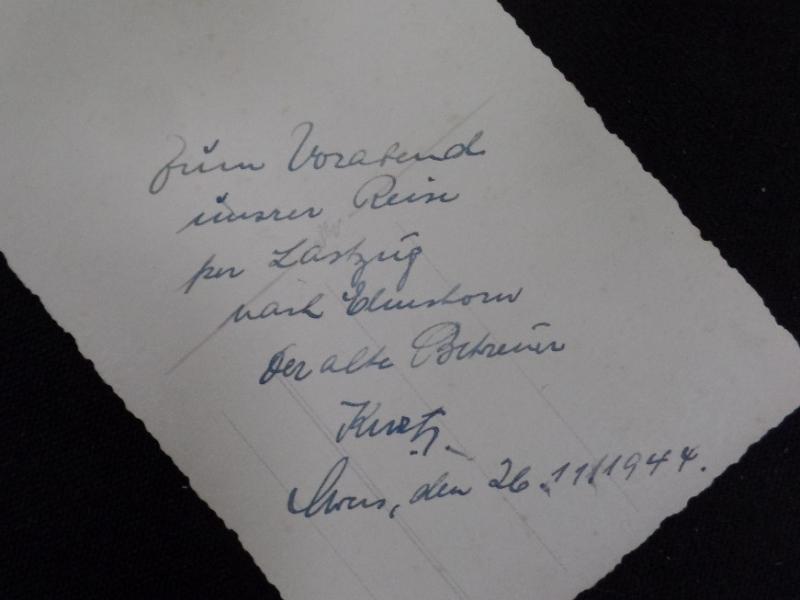 Zum Vorabend
unsrer Reise
per Lastzug
nach Elmshorn
Der alte Betreuer
Kurt
den 26.11.1944.